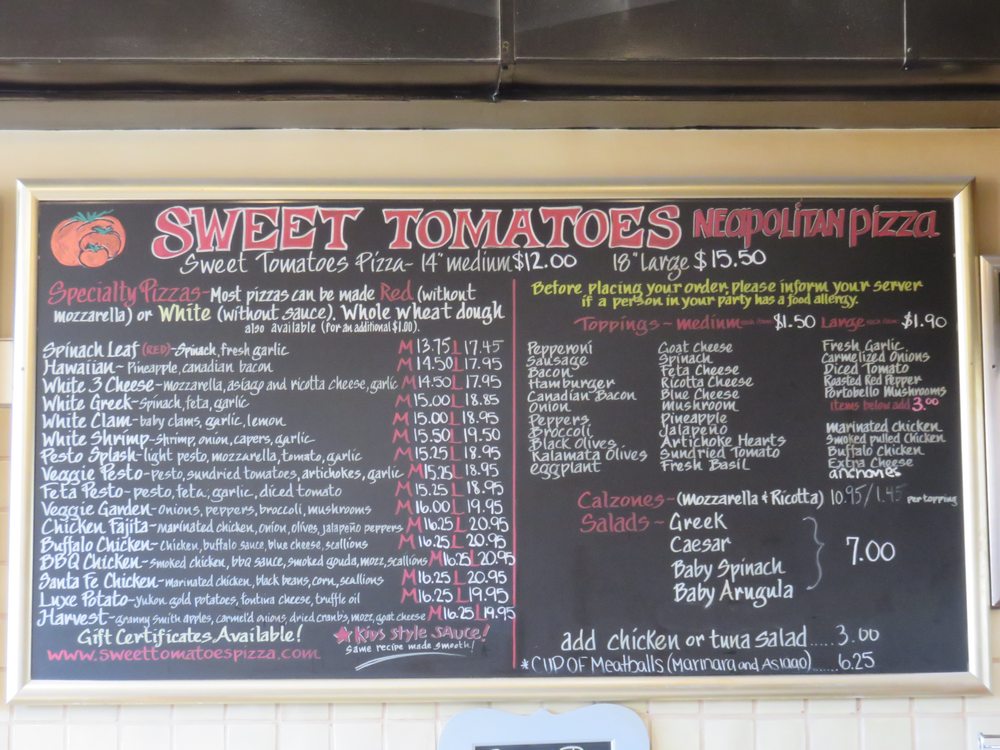 SWEET TOMATOES NEAPOLITAN pizza
Sweet Tomatoes Pizza- 14" medium $12.00 18" Large $15.50
Specialty Pizzas- Most pizzas can be made Red (without
mozzarella) or White (without sauce). Whole wheat dough
also available (for an additional $1.00).
Spinach Leaf (RED)- Spinach, fresh garlic M 13.75 L 17.45
Hawaiian- Pineapple, canadian bacon M 14.50 L 17.95
White 3 Cheese- mozzarella, asiago and ricotta cheese, garlic M 14.50 L 17.95
White Greek- Spinach, feta, garlic M 15.00 L 18.85
White Clam- baby clams, garlic, lemon M 15.00 L 18.95
White Shrimp- shrimp, onion, capers, garlic M 15.50 L 19.50
Pesto Splash- light pesto, mozzarella, tomato, garlic M 15.25 L 18.95
Veggie Pesto- pesto, sundried tomatoes, artichokes, garlic M 15.25 L 18.95
Feta Pesto- pesto, feta, garlic, diced tomato M 15.25 L 18.95
Veggie Garden- onions, peppers, broccoli, mushrooms M 16.00 L 19.95
Chicken Fajita- marinated chicken, onion, olives, jalapeño peppers M 16.25 L 20.95
Buffalo Chicken- chicken, buffalo sauce, blue cheese, scallions M 16.25 L 20.95
BBQ Chicken- smoked chicken, bbq sauce, smoked gouda, mozz, scallions M 16.25 L 20.95
Santa Fe Chicken- marinated chicken, black beans, corn, scallions M 16.25 L 20.95
Luxe Potato- yukon gold potatoes, fontina cheese, truffle oil M 16.25 L 19.95
Harvest- granny smith apples, carmel'd onions, dried cranbs, mozz, goat cheese M 16.25 L 19.95
Gift Certificates Available!
www.sweettomatoespizza.com
★ Kids Style SAUCE!
Same recipe made smooth!
Before placing your order, please inform your server
if a person in your party has a food allergy.
Toppings- medium each item $1.50 Large each item $1.90
Pepperoni
Sausage
Bacon
Hamburger
Canadian Bacon
Onion
Peppers
Broccoli
Black Olives
Kalamata Olives
eggplant
Goat Cheese
Spinach
Feta Cheese
Ricotta Cheese
Blue Cheese
Mushroom
Pineapple
Jalapeño
Artichoke Hearts
Sundried Tomato
Fresh Basil
Fresh Garlic
Carmelized Onions
Diced Tomato
Roasted Red Pepper
Portobello Mushrooms
Items below add 3.00
marinated chicken
Smoked pulled Chicken
Buffalo Chicken
Extra Cheese
anchovies
Calzones- (Mozzarella & Ricotta) 10.95/1.45 per topping
Salads- Greek
Caesar
Baby Spinach
Baby Arugula
7.00
add chicken or tuna salad..... 3.00
*CUP OF Meatballs (Marinara and Asiago)...... 6.25